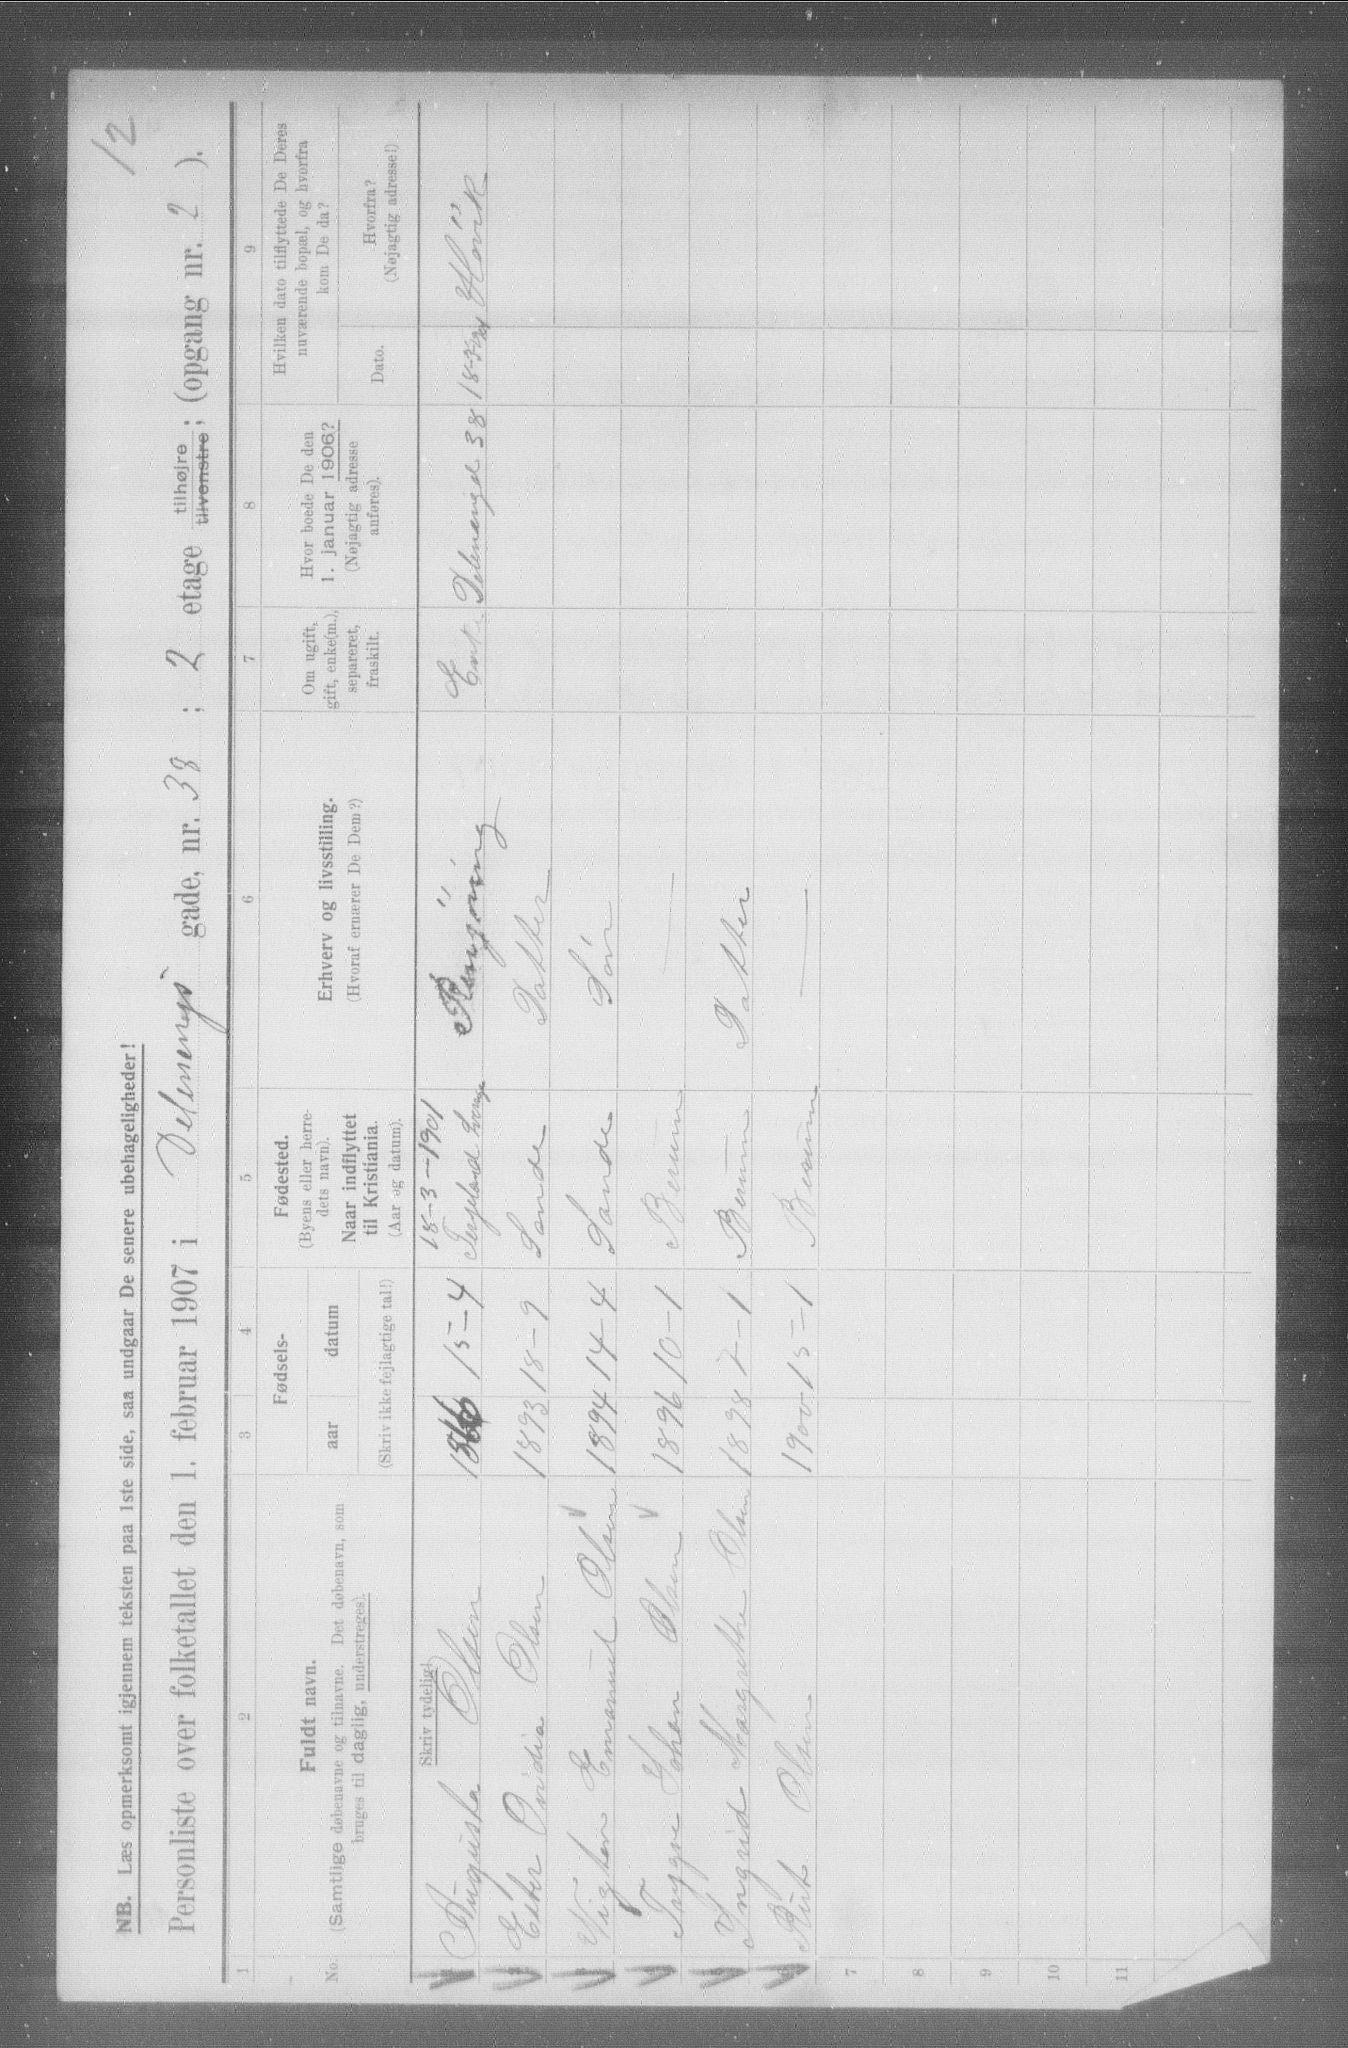 12
NB. Læs opmerksomt igjennem teksten paa 1ste side, saa undgaar De senere ubehageligheder!
Personliste over folketallet den 1. februar 1907 i Delenengs gade, nr. 38 ; 2 etage tilhøjre tilvenstre; (opgang nr. 2 ).
1 2 3 4 5 6 7 8 9
No.
Fuldt navn.
(Samtlige døbenavne og tilnavne. Det døbenavn, som
bruges til daglig, understreges).
Fødsels-
aar datum
(Skriv ikke fejlagtige tal!)
Fødested.
(Byens eller herre-
dets navn).
Naar indflyttet
til Kristiania.
(Aar og datum).
Erhverv og livsstilling.
(Hvoraf ernærer De Dem?)
Om ugift,
gift, enke(m.),
separeret,
fraskilt.
Hvor boede De den
1. januar 1906?
(Nøjagtig adresse
anføres).
Hvilken dato tilflyttede De Deres
nuværende bopæl, og hvorfra
kom De da?
Dato.
Hvorfra?
(Nøjagtig adresse!)
Skriv tydelig!
18-3-1901
1 Augusta Olsen 1866 15-4 Rengöring Enke Delenengd 38 Hövik
2 Ester Ovidia Olsen 1893 18-9 Sande Datter
3 Emanuel Olsen 1894 14-4 Sande Sön
4 Johan Olsen 1896 10-1 Berum —
5 Ingrid Margrethe Olsen 1898 7-1 Berum Datter
6 Rut Olsen 1900 15-1 Berum —
7
8
9
10
11